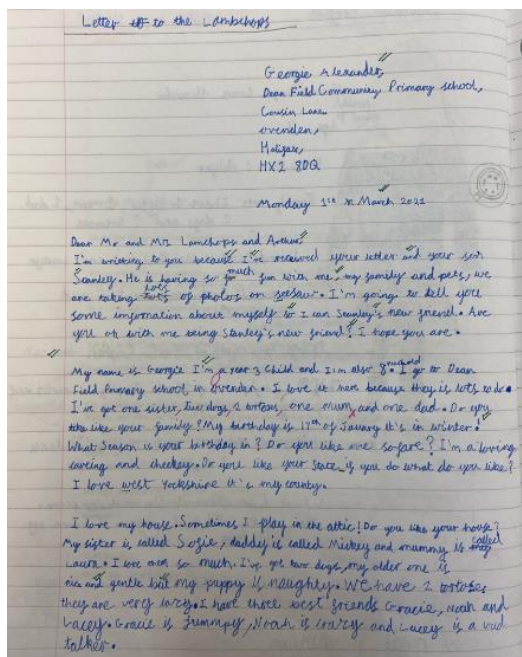 Letter to the Lambchops
Georgie Alexander,
Dean Field Community Primary school,
Cousin Lane
ovenden,
Halifax,
HX2 8DQ
Monday 1st March 2022
Dear Mr and Mrs Lamchops and Arthur,
I'm writing to you because I've received your letter and your son
Stanley. He is having so much fun with me, my family and pets, we
are taking lots of photos on seesaw. I'm going to tell you
some information about myself so I can Stanley's new friend. Are
you ok with me being Stanley's new friend? I hope you are.
My name is Georgie I'm a year 3 child and I'm also 8. I go to Dean
Field Primary school in ovenden. I love it here because they is lots to do.
I've got one sister, two dogs, 2 tortoses, one mum, and one dad. Do you
like your family? My birthday is 17th of January it's in winter.
What Season is your birthday in? Do you like me sofare? I'm a loving
careing and cheekey. Do you like your State if you do what do you like?
I love west Yorkshire it's my county.
I love my house. Sometimes I play in the attic! Do you like your house?
My sister is called Sofie, daddy is called Mickey and mummy is called
Laura. I love them so much. I've got two dogs, my older one is
nice and gentle but my puppy is naughty. We have 2 tortoses
they are very lazy. I have three best friends Gracie, Noah and
Lacey. Gracie is jrumpy, Noah is crazy and Lacey is a
talker.